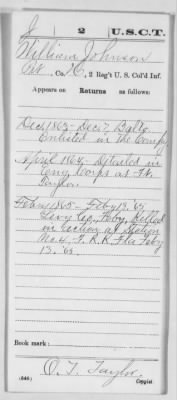 J 2 U.S.C.T.
William Johnson
Pvt, Co. C, 2 Reg't U. S. Col'd Inf.
Appears on Returns as follows:
Dec 1863 - Dec 7, Balto
Enlisted in the Comp'y
April 1864 - Detailed in
Corps at Ft.
Taylor.
Feby 1865 - Feby 13, '65
Levy Co., Killed
in action at Station
No. 4, F. R. R. Fla Feby
13, '65.
Book mark:
O. T. Taylor
(546) Copyist.